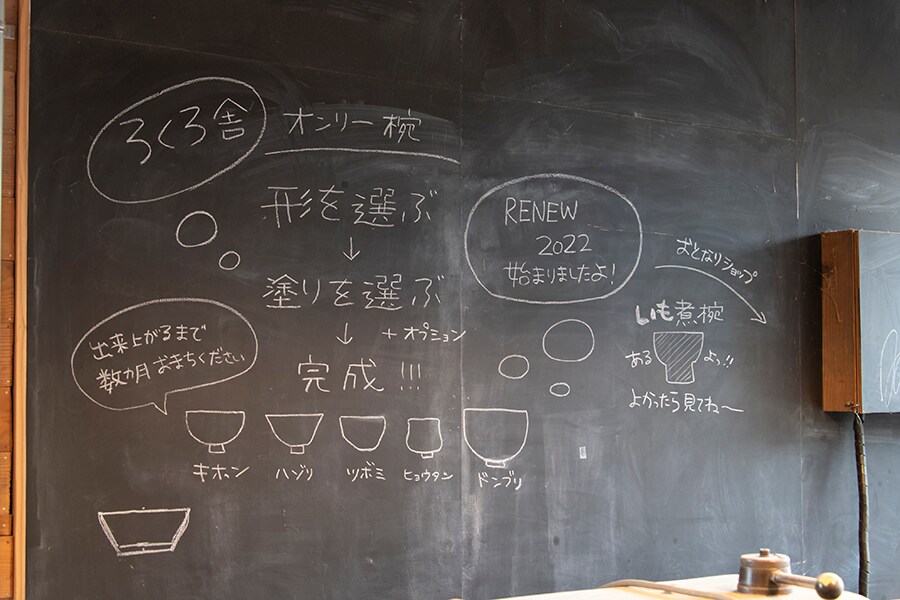 ろくろ舎
オンリー椀
形を選ぶ
↓
塗りを選ぶ
↓ +オプション
完成!!!
出来上がるまで
数カ月おまちください
キホン
ハゾリ
ツボミ
ヒョウタン
ドンブリ
RENEW
2022
始まりましたよ!
おとなりショップ
いも煮椀
ある
よっ!!
よかったら見てね〜